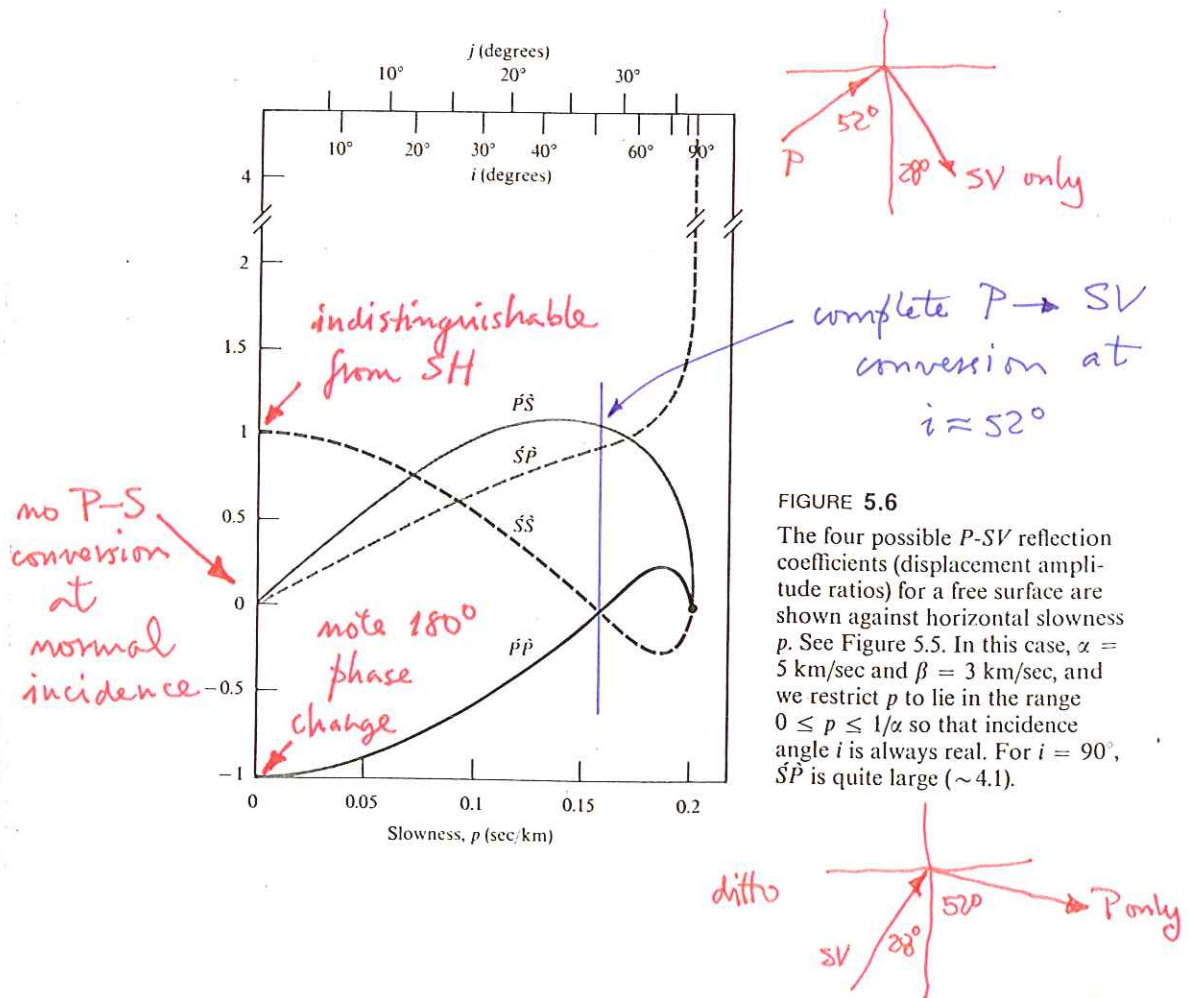 j (degrees)
10°
20°
30°
10°
20°
30°
40°
60°
90°
i (degrees)
4
2
1.5
1
0.5
0
−0.5
−1
0
0.05
0.1
0.15
0.2
Slowness, p (sec/km)
ṔS̀
S̀́P̀
ŚS̀
ṔP̀
indistinguishable
from SH
no P-S
conversion
at
normal
incidence
note 180°
phase
change
P
52°
28°
SV only
complete P → SV
conversion at
i ≈ 52°
FIGURE 5.6
The four possible P-SV reflection
coefficients (displacement ampli-
tude ratios) for a free surface are
shown against horizontal slowness
p. See Figure 5.5. In this case, α =
5 km/sec and β = 3 km/sec, and
we restrict p to lie in the range
0 ≤ p ≤ 1/α so that incidence
angle i is always real. For i = 90°,
ŚP̀ is quite large (~4.1).
ditto
SV
28°
52°
P only